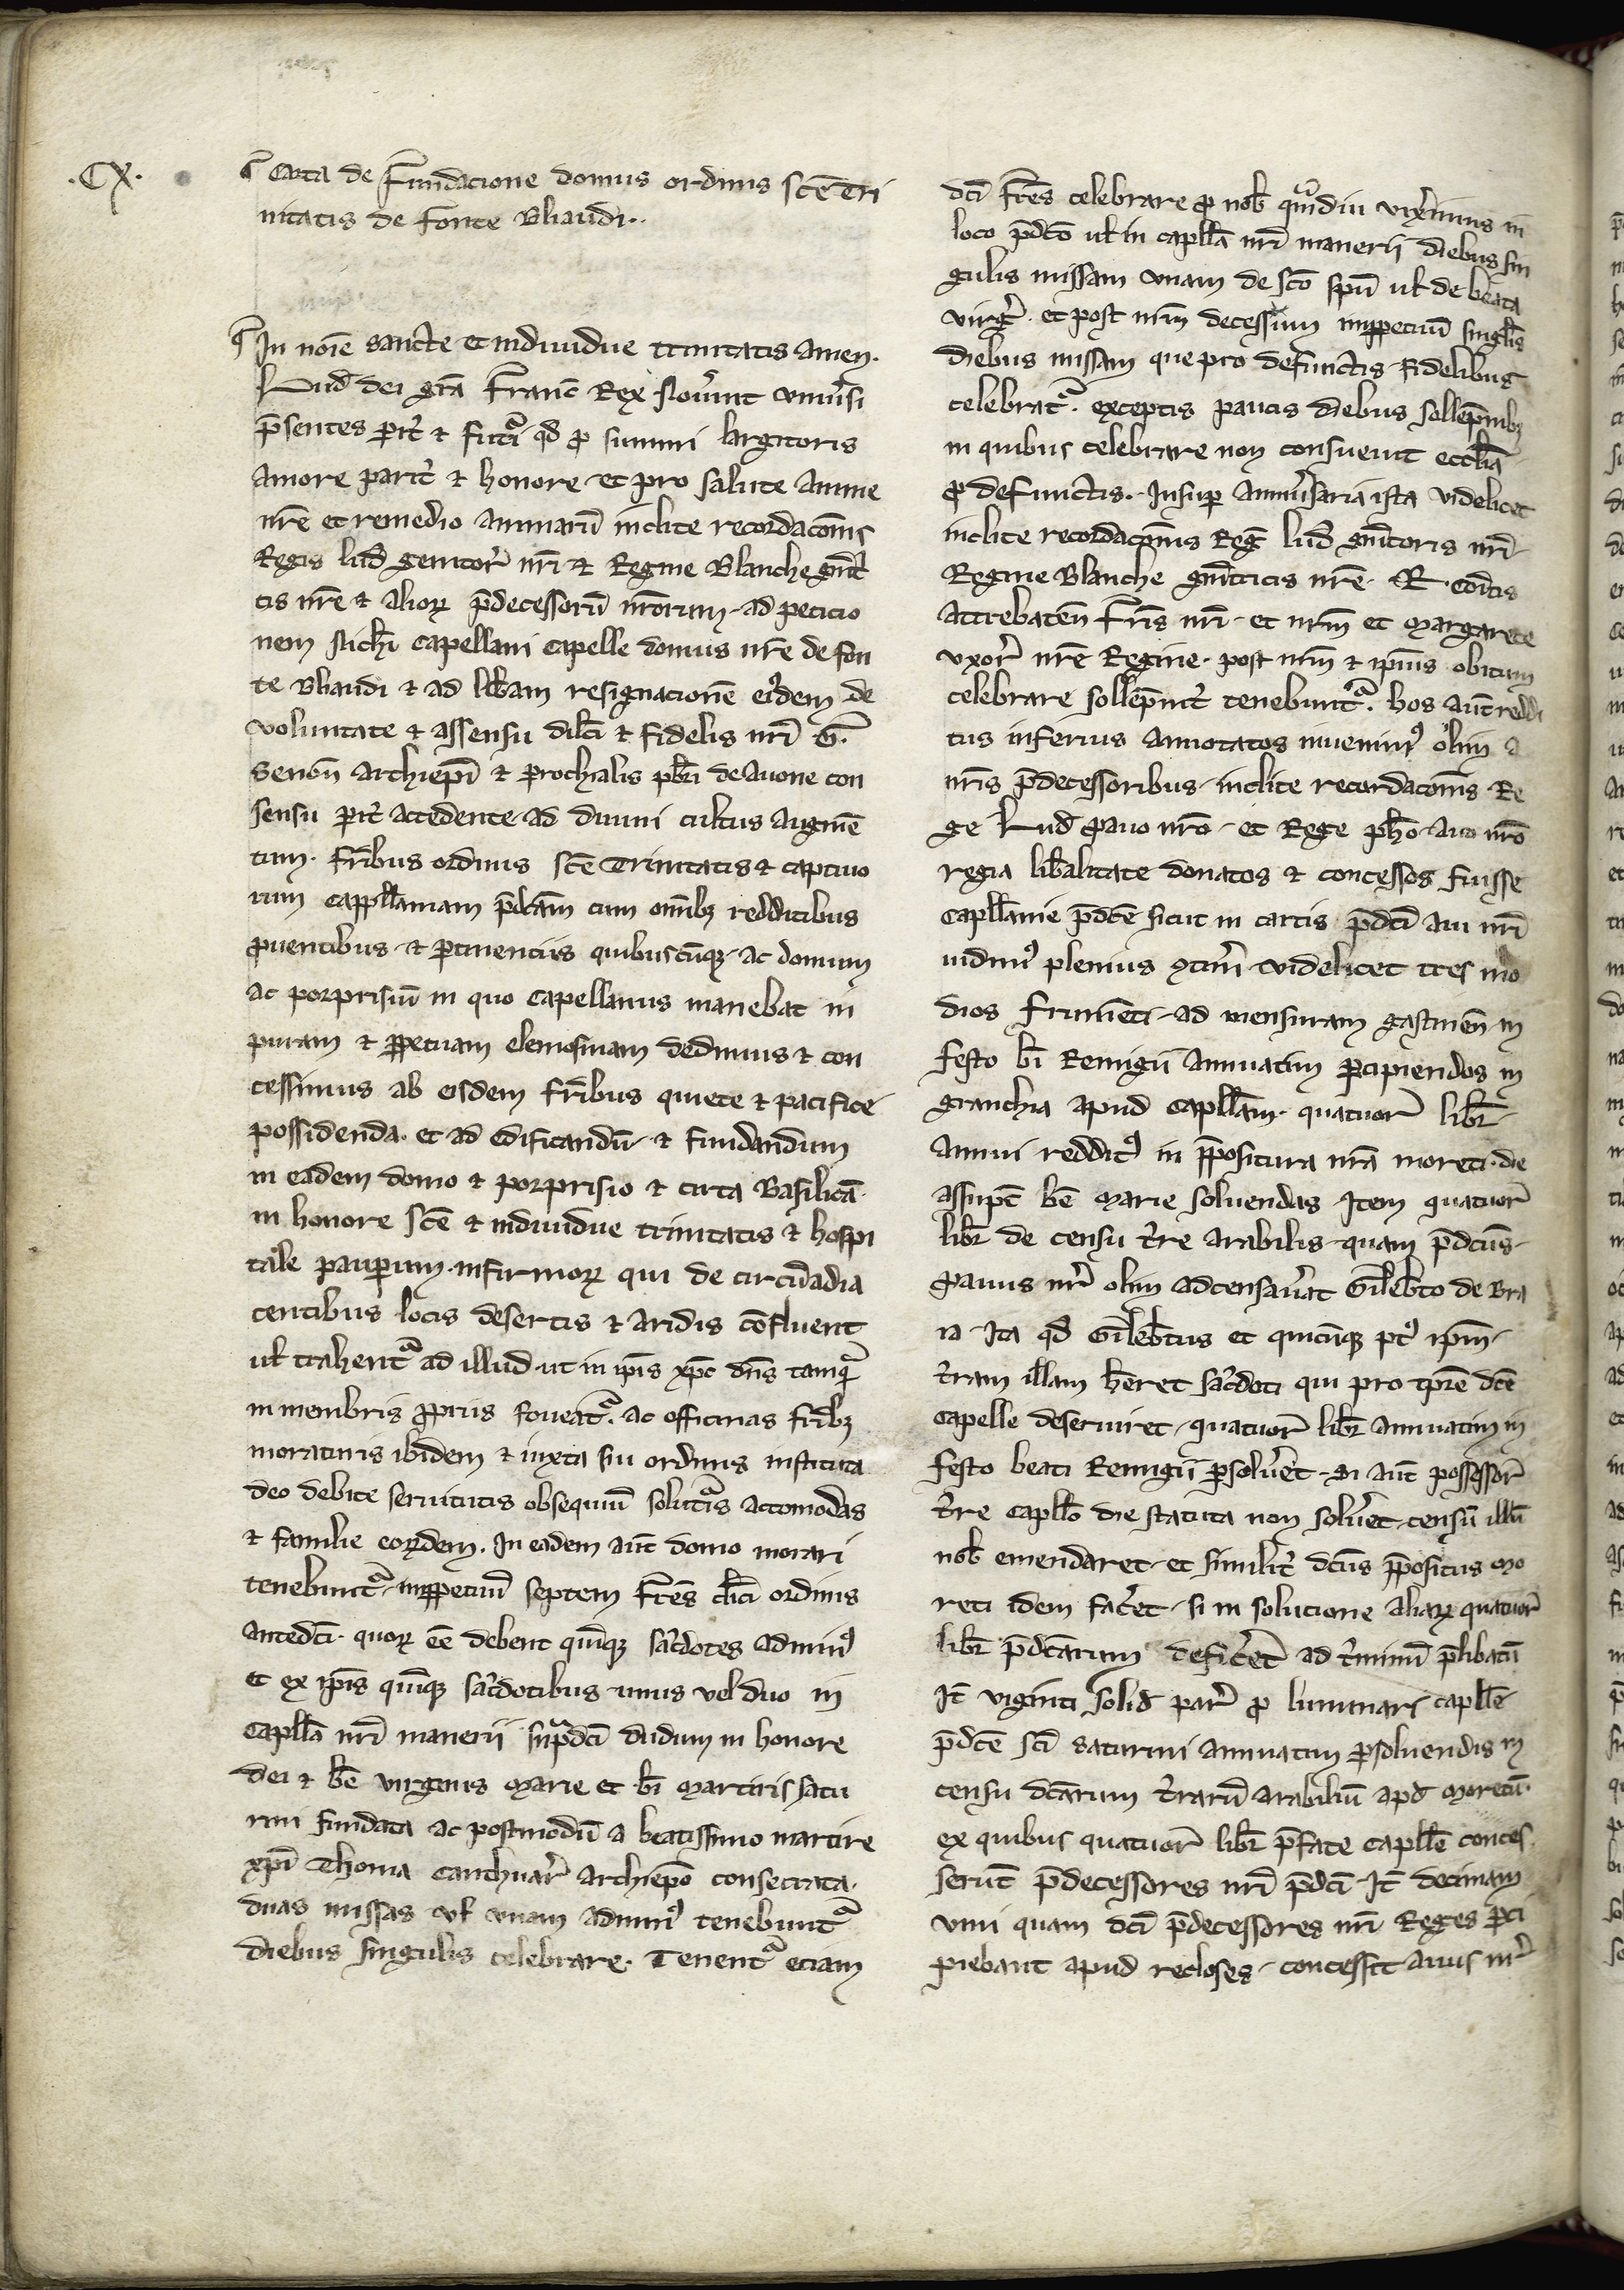 .CX.
Carta de Fundacione domus ordinis scē Tri
nitatis de Fonte Bliaudi..
In noīe sancte et individue trinitatis amen.
Lud̄ dei grā Franc̄ Rex Nov̄int univ̄si
p̄sentes pit̄ & futͥ qd̄ ꝓ summi largitoris
amore parit̄ & honore et pro salute anime
nr̄e et remedio animarū inclite recordacōis
Regis lud̄ genitor̄ nr̄i & Regine Blanche gn̄it
cis nr̄e & alioꝝ p̄decessorū nr̄orum ad peticio
nem Nich̄i capellani capelle domus nr̄e de fon
te Bliaudi & ad lib̄am resignacionē eiꝰdem de
voluntate & assensu dil̄ci & fidelis nr̄i G.
Senon̄ archiepī & parochialis pbr̄i de Avone con
sensu pit̄ accedente ad divini cultus augmē
tum. fr̄ibus ordinis scē Trinitatis & captivo
rum cappll̄aniam p̄dcām cum om̄ibꝫ redditibus
ꝓventibus & ꝑtinenciis quibuscūqꝫ ac domum
ac porprisiū in quo capellanus manebat in
puram & ꝑpetuam elemosinam dedimus & con
cessimus ab eisdem fr̄ibus quiete & pacifice
possidenda. et ad edificandū & fundandum
in eadem domo & porprisio & circa Basilicā
in honore scē & individue trinitatis & hospi
tale paupꝑum infirmoꝝ qui de circūadia
centibus locis desertis & aridis cōfluent
ul̄ trahentᷣ ad illud ut in ip̄is xp̄c dn̄s tamqᷓ
in membris ꝓpriis foveatᷣ. ac officinas fr̄ibꝫ
moraturis ibidem & iuxta sui ordinis instituta
deo debite servitutis obsequiū solutᷣis accomodas
& familie eoꝝdem. In eadem aūt domo morari
tenebuntᷣ imꝑpetuū septem fr̄es cl̄ici ordinis
antedc̄i. quoꝝ eē debent quīqꝫ sac̄dotes ad minꝰ
et ex ip̄is quīqꝫ sac̄dotibus unus vel duo in
capll̄a nr̄i manerii supᷓdc̄i dudum in honore
dei & bē virginis Marie et bī Martiris satu
rni fundata ac postmodū a beatissimo martire
xp̄i Thoma cantuar̄ archiepō consecrata.
duas missas ul̄ unam ad minꝰ tenebuntᷣ
diebus singulis celebrare. Tenentᷣ eciam
dc̄i fr̄es celebrare ꝓ nob̄ qᷓmdiu vix̄imus in
loco p̄dc̄o ul̄ in capll̄a nr̄i manerii diebus sin
gulis missam unam de scō spū ul̄ de beata
virgīe. et post nr̄m decessum imꝑpetuū singl̄is
diebus missam que pro defunctis fidelibus
celebratᷣ. exceptis paucis diebus sollēpnibꝫ
in quibus celebrare non consuevit eccl̄ia
ꝓ defunctis. Insup̄ anniv̄saria ista videlicet
inclite recordacōnis Reḡ lud̄ gn̄itoris nr̄i
Regine Blanche gn̄itricis nr̄e. R. com̄itis
Attrebaten̄ fr̄is nr̄i et nr̄m et Margarete
uxor̄ nr̄e Regine. post nr̄m & ip̄ius obitum
celebrare sollēpnit̄ tenebuntᷣ. hos aūt reddi
tus inferius annotatos invenimꝰ olim a
nr̄is p̄decessoribus inclite recordacōnis Re
ge Lud̄ ꝓavo nr̄o et Rege ph̄o avo nr̄o
regia lib̄alitate donatos & concessos fuisse
capll̄anie p̄dc̄e sicut in cartis p̄dc̄i avi nr̄i
vidimꝰ plenius ꝯtin̄i videlicet tres mo
dios frumēti ad mensuram gastinen̄ in
festo bī Remigii annuatim ꝑcipiendos in
granchia apud Capll̄am. quatuor libr̄
annui redditꝰ in p̄positura nr̄a moreti. de
assūpc̄ bē Marie solvendas Item quatuor
libr̄ de censu t̄re arabilis quam p̄dc̄us
ꝓavus nr̄ olim adcensav̄at Gilleb̄to de Bra
ia ita qd̄ Gilleb̄tus et quicūqꝫ pꝰ ip̄m
t̄ram illam h̄eret sac̄doti qui pro tp̄re dc̄e
Capelle deserviret quatuor libr̄ annuatim in
festo beati Remigii ꝑsolv̄et Si aūt possessor̄
t̄re capll̄o die statuta non solv̄et censū illū
nob̄ emendaret et similit̄ dc̄us p̄positus Mo
reti idem fac̄et si in solucione aliaꝝ quatuor
libr̄ p̄dc̄arum defic̄et ad t̄minū p̄libatū
It̄ viginti solid̄ par̄ ꝓ luminari capll̄e
p̄dc̄e sc̄i saturnini annuatim ꝑsolvendis in
censu dc̄arum t̄rarū arabiliū apd̄ Moretū
ex quibus quatuor libr̄ p̄fate capll̄e conces
serūt p̄decessores nr̄i p̄dc̄i It̄ decimam
vini quam dc̄i p̄decessores nr̄i Reges ꝑci
piebant apud recloses concessit avus nr̄